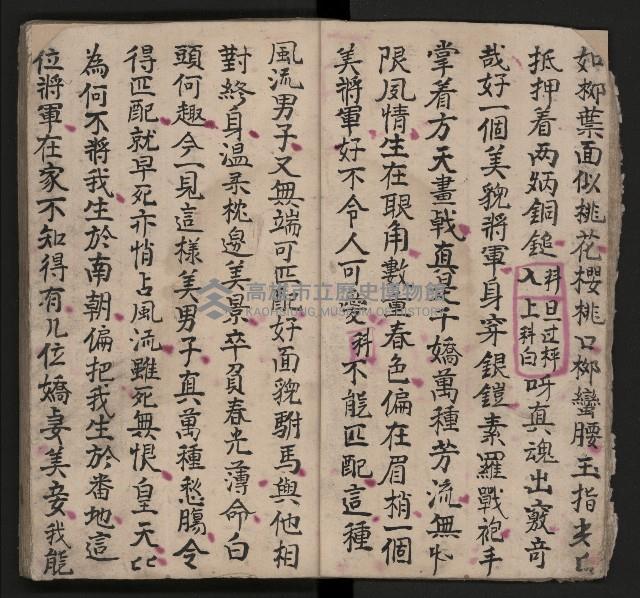 如柳葉面似桃花櫻桃口柳蠻腰玉指尖尖
抵押着两炳銅鎚
科旦过枰
入上科白
呀真魂出竅竒
哉好一個美貌將軍身穿銀鎧素羅戰袍手
掌着方天畫戟真是千嬌萬種芳流無
限风情生在眼角數
春色偏在眉梢一個
美將軍好不令人可愛科不能匹配這種
風流男子又無端可匹配好面貌駙馬與他相
對終身温柔枕邊美景卒負春光薄命白
頭何趣今一見這樣美男子真萬種愁腸令
得匹配就早死亦悄占風流雖死無恨皇天
為何不將我生於南朝偏把我生於番地這
位將軍在家不知得有几位嬌妻美妾我能
高雄市立歷史博物館
KAOHSIUNG MUSEUM OF HISTORY